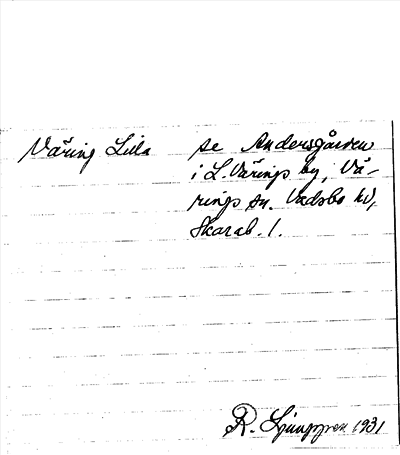 Väring Lilla se Andersgården
i L. Värings by, Vä-
rings sn. Vadsbo hd,
Skarab. l.
R. Ljunggren 1931